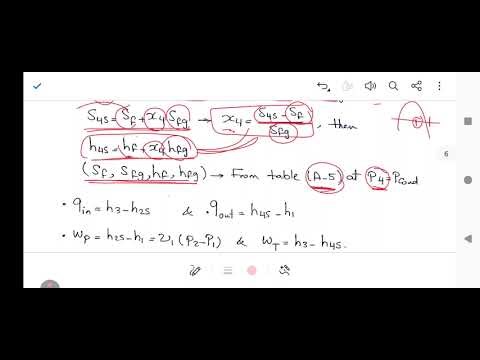 S4s = Sf + x4 Sfg → x4 = S4s - Sf / Sfg , then
h4s = hf + x4 hfg
(Sf, Sfg, hf, hfg) → From table (A-5) at P4 = Pcond
6
• qin = h3 - h2s & • qout = h4s - h1
• WP = h2s - h1 = υ1 (P2 - P1) & WT = h3 - h4s.